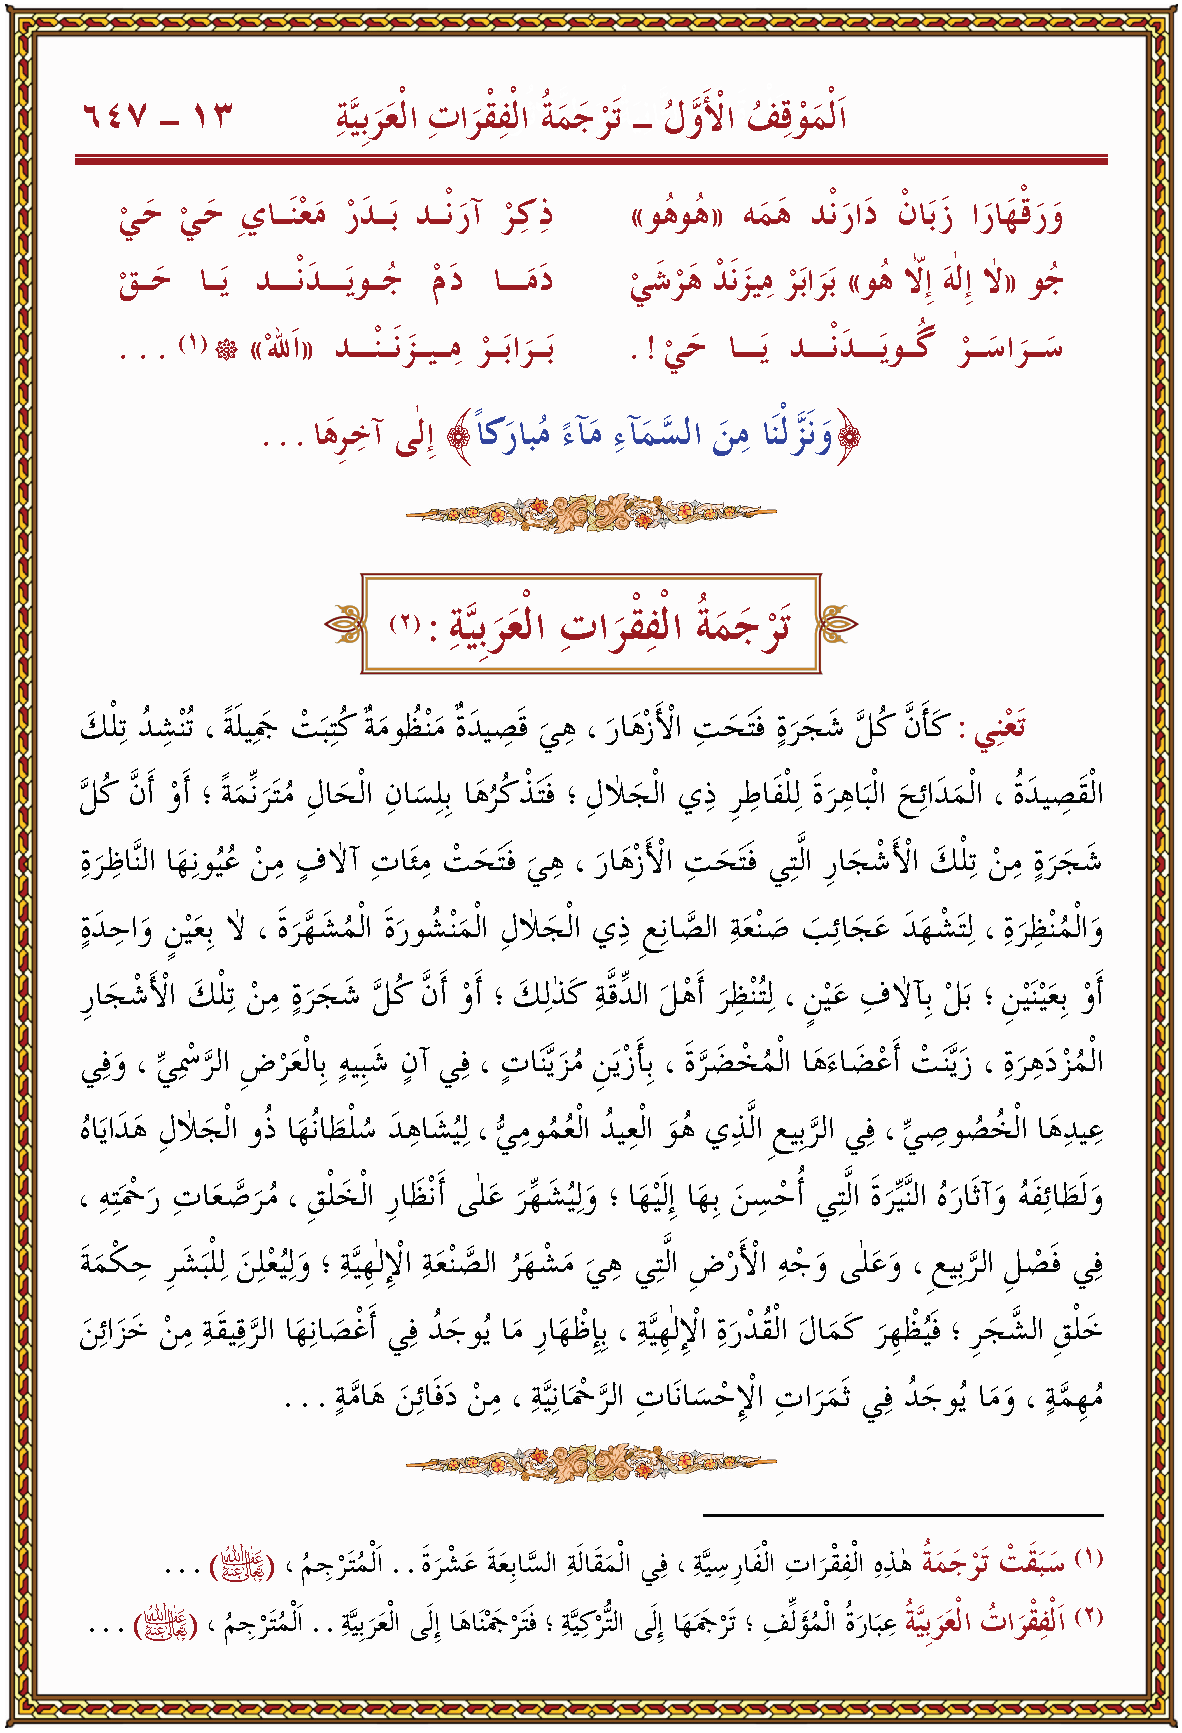 اَلْمَوْقِفُ الْأَوَّلُ ـ تَرْجَمَةُ الْفِقْرَاتِ الْعَرَبِيَّةِ ١٣ ـ ٦٤٧
وَرَقْهَارَا زَبَانْ دَارَنْد هَمَه «هُوهُو» ذِكِرْ آرَنْـد بَـدَرْ مَعْنَـايِ حَيْ حَيْ
جُو «لَا إِلٰهَ إِلَّا هُو» بَرَابَرْ مِيزَنَدْ هَرْشَيْ دَمَـا دَمْ جُـويَـدَنْـد يَـا حَـقْ
سَـرَاسَـرْ گُـويَـدَنْـد يَـا حَيْ ! . بَـرَابَـرْ مِـيـزَنَـنْـد «اَللهْ» ❁ (١) . . .
﴿وَنَزَّلْنَا مِنَ السَّمَآءِ مَآءً مُبَارَكاً﴾ إِلٰى آخِرِهَا . . .
تَرْجَمَةُ الْفِقْرَاتِ الْعَرَبِيَّةِ : (٢)
تَعْنِي : كَأَنَّ كُلَّ شَجَرَةٍ فَتَحَتِ الْأَزْهَارَ ، هِيَ قَصِيدَةٌ مَنْظُومَةٌ كُتِبَتْ جَمِيلَةً ، تُنْشِدُ تِلْكَ
الْقَصِيدَةُ ، الْمَدَائِحَ الْبَاهِرَةَ لِلْفَاطِرِ ذِي الْجَلَالِ ؛ فَتَذْكُرُهَا بِلِسَانِ الْحَالِ مُتَرَنِّمَةً ؛ أَوْ أَنَّ كُلَّ
شَجَرَةٍ مِنْ تِلْكَ الْأَشْجَارِ الَّتِي فَتَحَتِ الْأَزْهَارَ ، هِيَ فَتَحَتْ مِئَاتِ آلَافٍ مِنْ عُيُونِهَا النَّاظِرَةِ
وَالْمُنْظِرَةِ ، لِتَشْهَدَ عَجَائِبَ صَنْعَةِ الصَّانِعِ ذِي الْجَلَالِ الْمَنْشُورَةَ الْمُشَهَّرَةَ ، لَا بِعَيْنٍ وَاحِدَةٍ
أَوْ بِعَيْنَيْنِ ؛ بَلْ بِآلَافِ عَيْنٍ ، لِتُنْظِرَ أَهْلَ الدِّقَّةِ كَذٰلِكَ ؛ أَوْ أَنَّ كُلَّ شَجَرَةٍ مِنْ تِلْكَ الْأَشْجَارِ
الْمُزْدَهِرَةِ ، زَيَّنَتْ أَعْضَاءَهَا الْمُخْضَرَّةَ ، بِأَزْيَنِ مُزَيَّنَاتٍ ، فِي آنٍ شَبِيهٍ بِالْعَرْضِ الرَّسْمِيِّ ، وَفِي
عِيدِهَا الْخُصُوصِيِّ ، فِي الرَّبِيعِ الَّذِي هُوَ الْعِيدُ الْعُمُومِيُّ ، لِيُشَاهِدَ سُلْطَانُهَا ذُو الْجَلَالِ هَدَايَاهُ
وَلَطَائِفَهُ وَآثَارَهُ النَّيِّرَةَ الَّتِي أُحْسِنَ بِهَا إِلَيْهَا ؛ وَلِيُشَهِّرَ عَلٰى أَنْظَارِ الْخَلْقِ ، مُرَصَّعَاتِ رَحْمَتِهِ ،
فِي فَصْلِ الرَّبِيعِ ، وَعَلٰى وَجْهِ الْأَرْضِ الَّتِي هِيَ مَشْهَرُ الصَّنْعَةِ الْإِلٰهِيَّةِ ؛ وَلِيُعْلِنَ لِلْبَشَرِ حِكْمَةَ
خَلْقِ الشَّجَرِ ؛ فَيُظْهِرَ كَمَالَ الْقُدْرَةِ الْإِلٰهِيَّةِ ، بِإِظْهَارِ مَا يُوجَدُ فِي أَغْصَانِهَا الرَّقِيقَةِ مِنْ خَزَائِنَ
مُهِمَّةٍ ، وَمَا يُوجَدُ فِي ثَمَرَاتِ الْإِحْسَانَاتِ الرَّحْمَانِيَّةِ ، مِنْ دَفَائِنَ هَامَّةٍ . . .
(١) سَبَقَتْ تَرْجَمَةُ هٰذِهِ الْفِقْرَاتِ الْفَارِسِيَّةِ ، فِي الْمَقَالَةِ السَّابِعَةَ عَشْرَةَ . . اَلْمُتَرْجِمُ ، () . . .
(٢) اَلْفِقْرَاتُ الْعَرَبِيَّةُ عِبَارَةُ الْمُؤَلِّفِ ؛ تَرْجَمَهَا إِلَى التُّرْكِيَّةِ ؛ فَتَرْجَمْنَاهَا إِلَى الْعَرَبِيَّةِ . . اَلْمُتَرْجِمُ ، () . . .